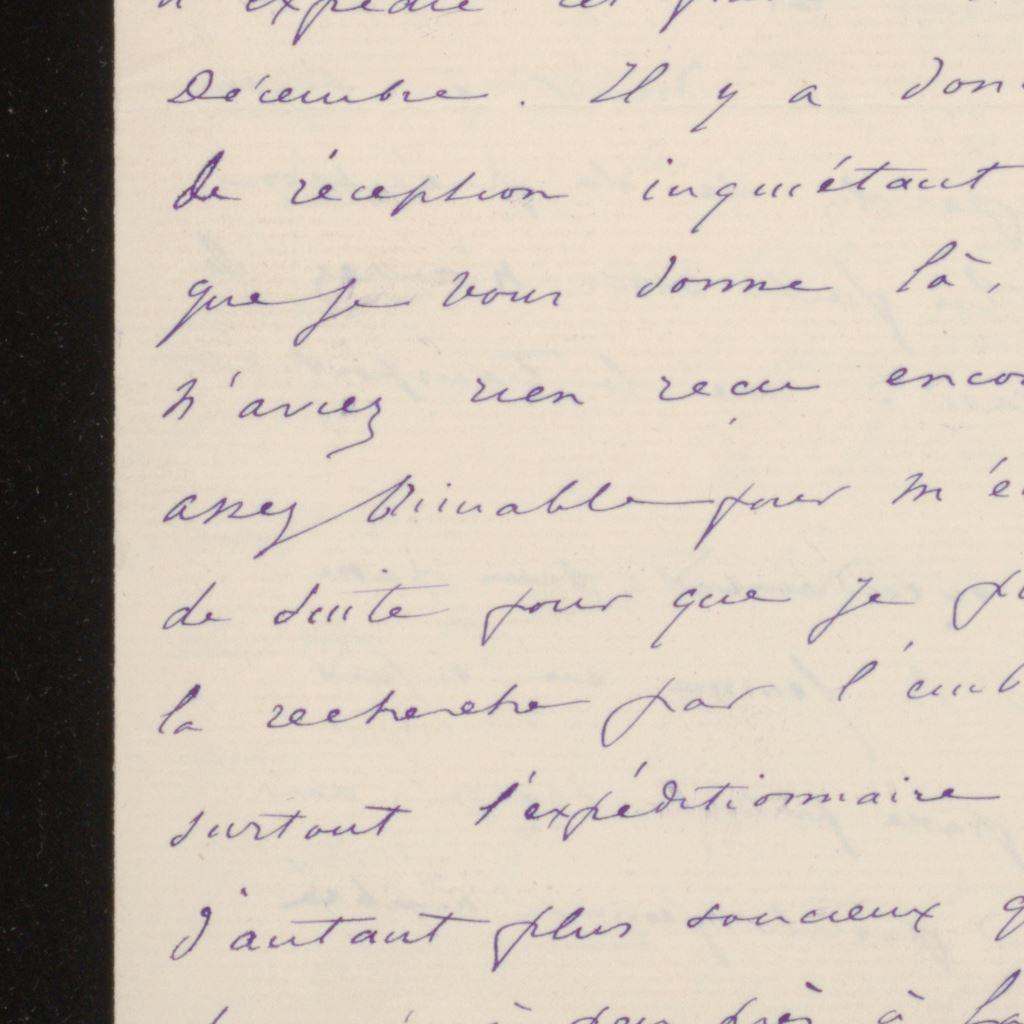 d'expédié
Décembre. Il y a don
de réception inquiétant
que je vous donne là,
n'aviez rien reçu enco
assez aimable pour m'é
de suite pour que je p
la recherche par l'emb
surtout l'expéditionnaire
d'autant plus soucieux q
peu près à